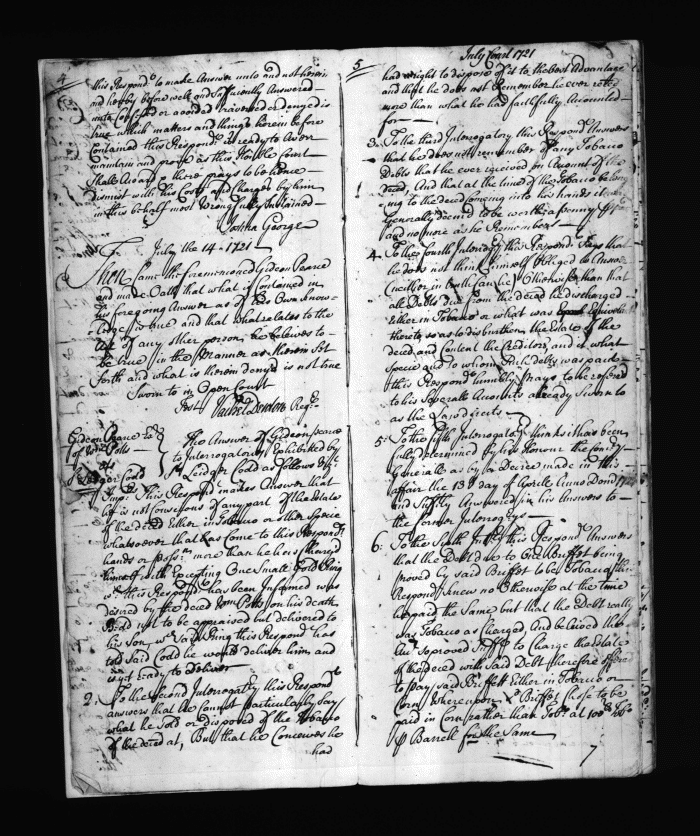 4
this Respond.t to make Answer unto and not herein
and hereby before well and sufficiently Answered
confessed or avoided traversed or denyed is
true which matters and things herein before
Contained this Respond.t is ready to Aver
maintain and prove as this Hon.ble Court
Shall Award & therefore prays to be hence
dismist with his Costs and Charges by him
in this behalf most Wrongfully Sustained
Joshua George
July the 14 - 1721
Then Came the forementioned Gideon Pearce
and made Oath that what is Contained in
his foregoing Answer as of his Own know-
ledge is true and that what relates to the
Act of any other person he beleives to
be true in the Manner as therein Set
forth and what is therein denyed is not true
Sworn to in Open Court
Test Reg.r
Gideon Pearce
of W.m Potts
Ledger Codd
The Answer of Gideon Pearce
to Interrogatorys Exhibited by
S.t Ledger Codd as follows
Imp.s This Respond.t makes Answer that
he is not Conscious of any part of the Estate
of the deced Either in Tobacco or other Specie
whatsoever that has come to this Respond.ts
hands or poss.n more than he has Charged
himself with Excepting One Small Gold Ring
w.ch this Respond.t has been Informed was
desired by the deced W.m Potts on his death
Bed not to be appraised but delivered to
his Son, w.ch Said Ring this Respond.t has
told Said Codd he would deliver him and
is yet ready to deliver
2. To the Second Interrogatory this Respond.t
answers that he cannot particularly Say
what he Sold or disposed of the Tobacco
of the deced at, But that he Conceives he
had
5
July Court 1721
had a right to dispose of it to the best Advantage
and that he does not Remember he ever
more than what he had faithfully Accounted
for
3. To the third Interrogatory this Respond.t Answers
that he does not remember of any Tobacco
Debts that he ever received on Account of the
deced, And that at the time of the Tobacco belong
ing to the deced coming into his hands it was
Generally deemed to be worth a penny
and no more as he Remembers
4. To the fourth Interrog.y this Respond.t Says that
he does not think himself Obliged to Answer
Otherwise than that
all Debts due from the deced he discharged
Either in Tobacco or what was Equivolent
thereto so as to disburthen the Estate of the
deced and Content the Creditors and in what
Specie and to whom Such debts was paid
this Respond.t humbly prays to be referred
to his Severall Accounts already Sworn to
as the Law directs
5. To the fifth Interrogatory thinks it has been
fully determined by his Honour the Com.y
Generall as by a decree made in this
affair the 13 day of Aprile Anno Dom
and Justly Answered in his Answers to
the former Interrogorys
6. To the Sixth this Respond.t Answers
that the Debt due to Buffet being
proved by said Buffet to be Tobacco this
Respond.t knew no Otherwise at the time
he paid the Same but that the Debt really
was Tobacco as Charged and beleived the
Acc.t so proved to Charge the Estate
of the deced with Said Debt therefore
to pay said Buffett Either in Tobacco or
Corn Whereupon Buffet chose to be
paid in Corn rather than Tob.o at 100
Barrell for the Same
7